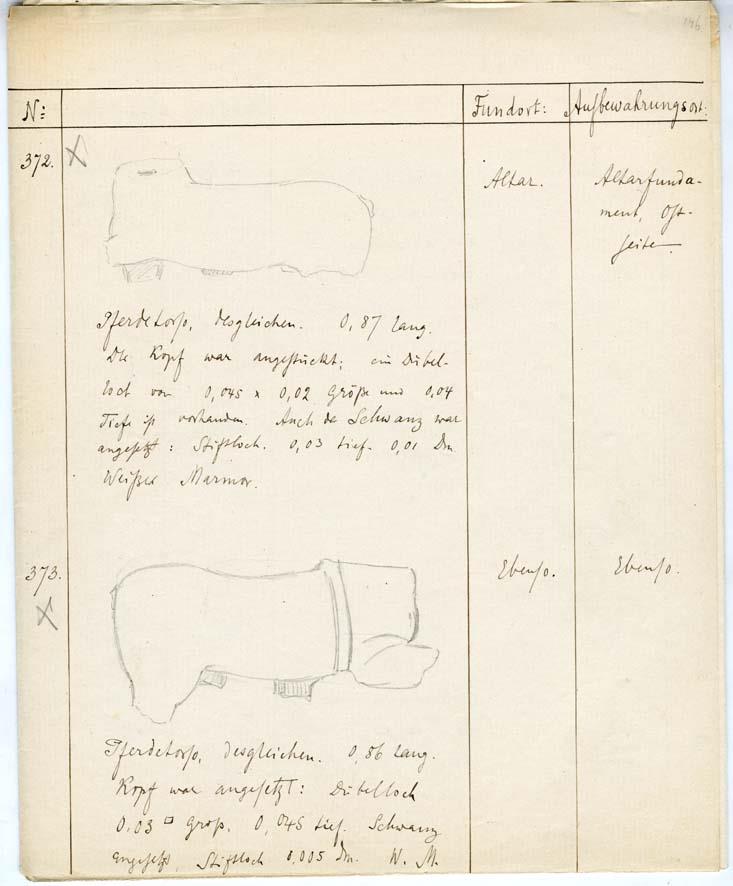 146.
N: Fundort: Aufbewahrungsort:
372. Altar. Altarfunda-
ment, Ost-
seite.
Pferdetorso, desgleichen. 0,87 lang.
Der Kopf war angestückt; ein Dübel-
loch von 0,045 x 0,02 Größe und 0,04
Tiefe ist vorhanden. Auch der Schwanz war
angesetzt: Stiftloch. 0,03 tief. 0,01 Dm.
Weißer Marmor.
373. Ebenso. Ebenso.
Pferdetorso, desgleichen. 0,86 lang.
Kopf war angesetzt: Dübelloch
0,03 □ groß. 0,045 tief. Schwanz
angesetzt, Stiftloch 0,005 Dm. W. M.